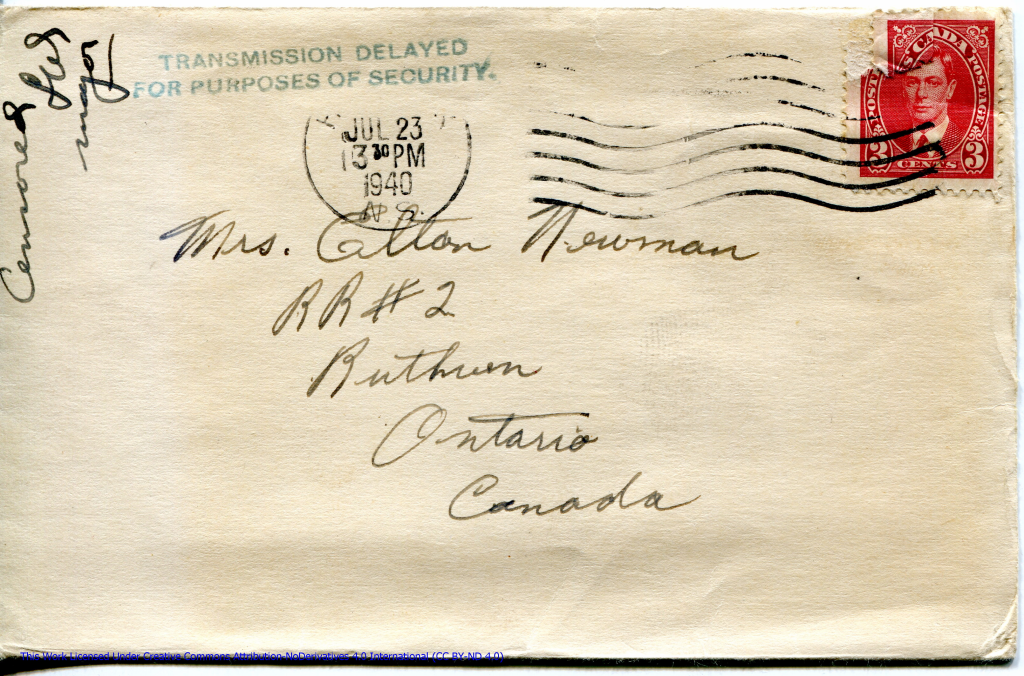 Censored
major
TRANSMISSION DELAYED
FOR PURPOSES OF SECURITY.
JUL 23
13 30 PM
1940
N.S.
CANADA
POSTES POSTAGE
3 CENTS 3
Mrs. Colton Newman
RR#2
Ruthven
Ontario
Canada
This Work Licensed Under Creative Commons Attribution-NoDerivatives 4.0 International (CC BY-ND 4.0)